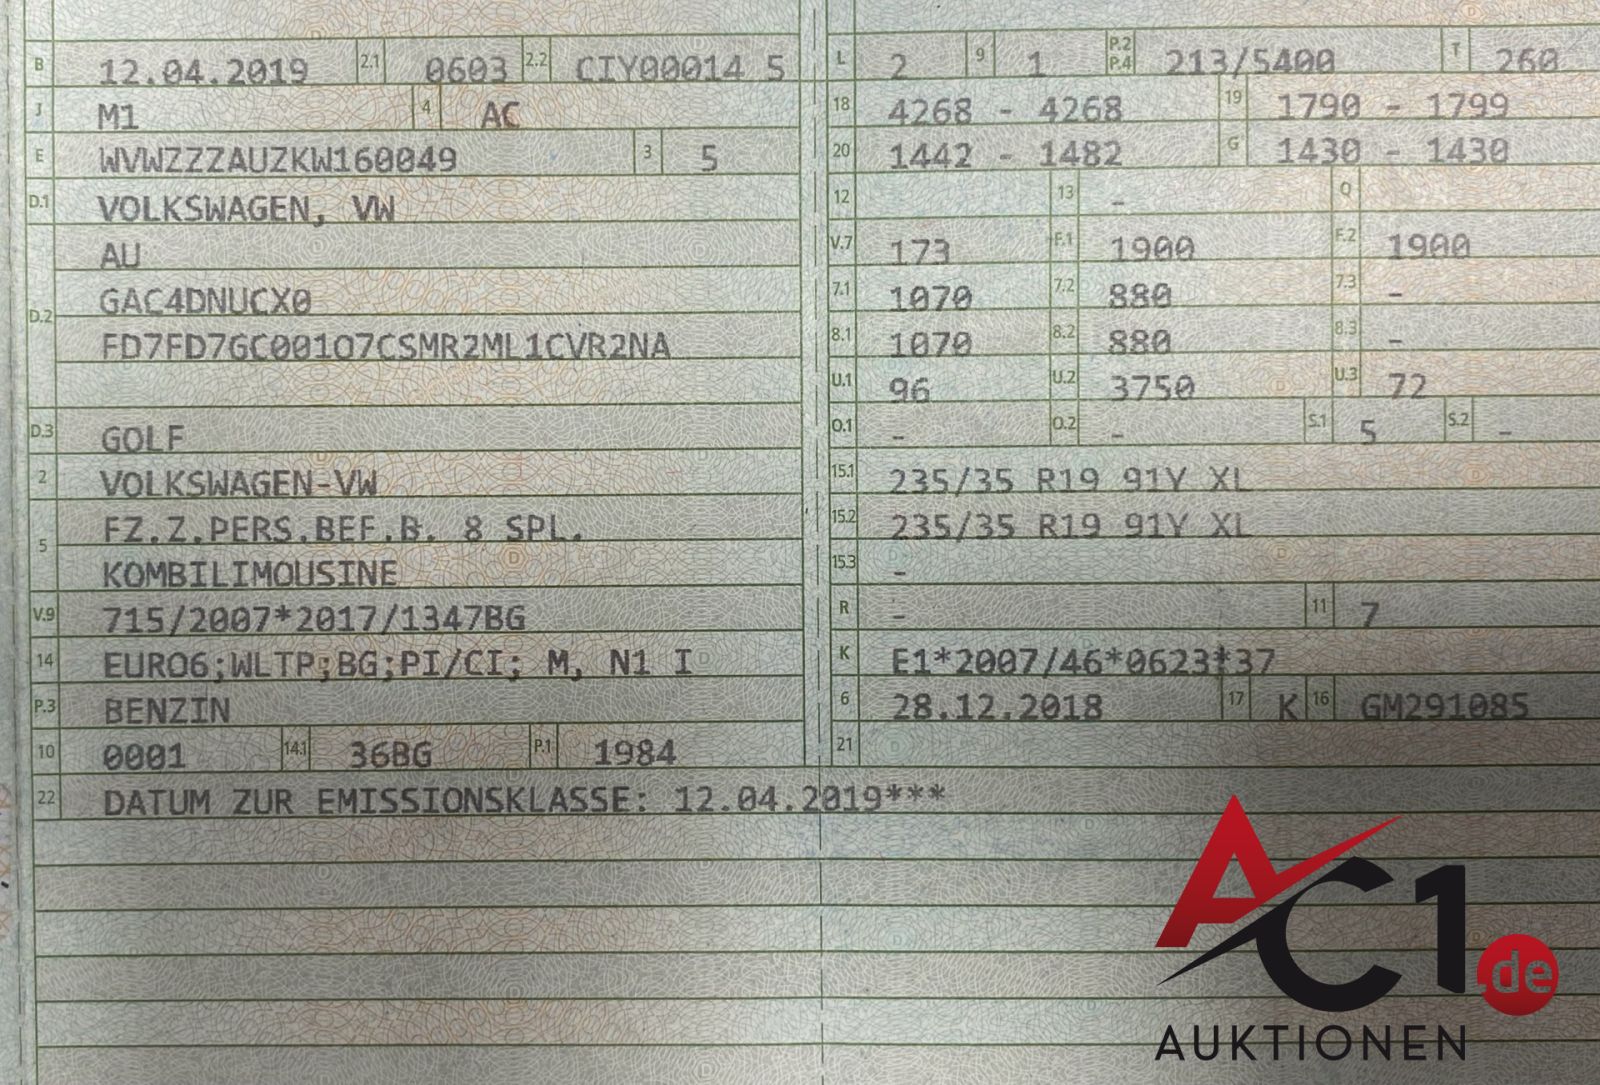 B 12.04.2019 2.1 0603 2.2 CIY00014 5
J M1 4 AC
E WVWZZZAUZKW160049 3 5
D.1 VOLKSWAGEN, VW
AU
D.2 GAC4DNUCX0
FD7FD7GC001O7CSMR2ML1CVR2NA
D.3 GOLF
2 VOLKSWAGEN-VW
5 FZ.Z.PERS.BEF.B. 8 SPL.
KOMBILIMOUSINE
V.9 715/2007*2017/1347BG
14 EURO6;WLTP;BG;PI/CI; M, N1 I
P.3 BENZIN
10 0001 14.1 36BG P.1 1984
22 DATUM ZUR EMISSIONSKLASSE: 12.04.2019***
L 2 9 1 P.2 P.4 213/5400 T 260
18 4268 - 4268 19 1790 - 1799
20 1442 - 1482 G 1430 - 1430
12 13 - Q
V.7 173 F.1 1900 F.2 1900
7.1 1070 7.2 880 7.3 -
8.1 1070 8.2 880 8.3 -
U.1 96 U.2 3750 U.3 72
O.1 - O.2 - S.1 5 S.2 -
15.1 235/35 R19 91Y XL
15.2 235/35 R19 91Y XL
15.3 -
R - 11 7
K E1*2007/46*0623*37
6 28.12.2018 17 K 16 GM291085
21
AC1.de
AUKTIONEN